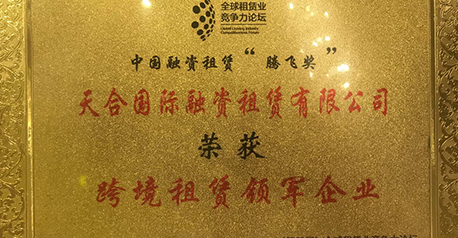 全球租赁业
竞争力论坛
中国融资租赁“腾飞奖”
天合国际融资租赁有限公司
荣获
跨境租赁领军企业